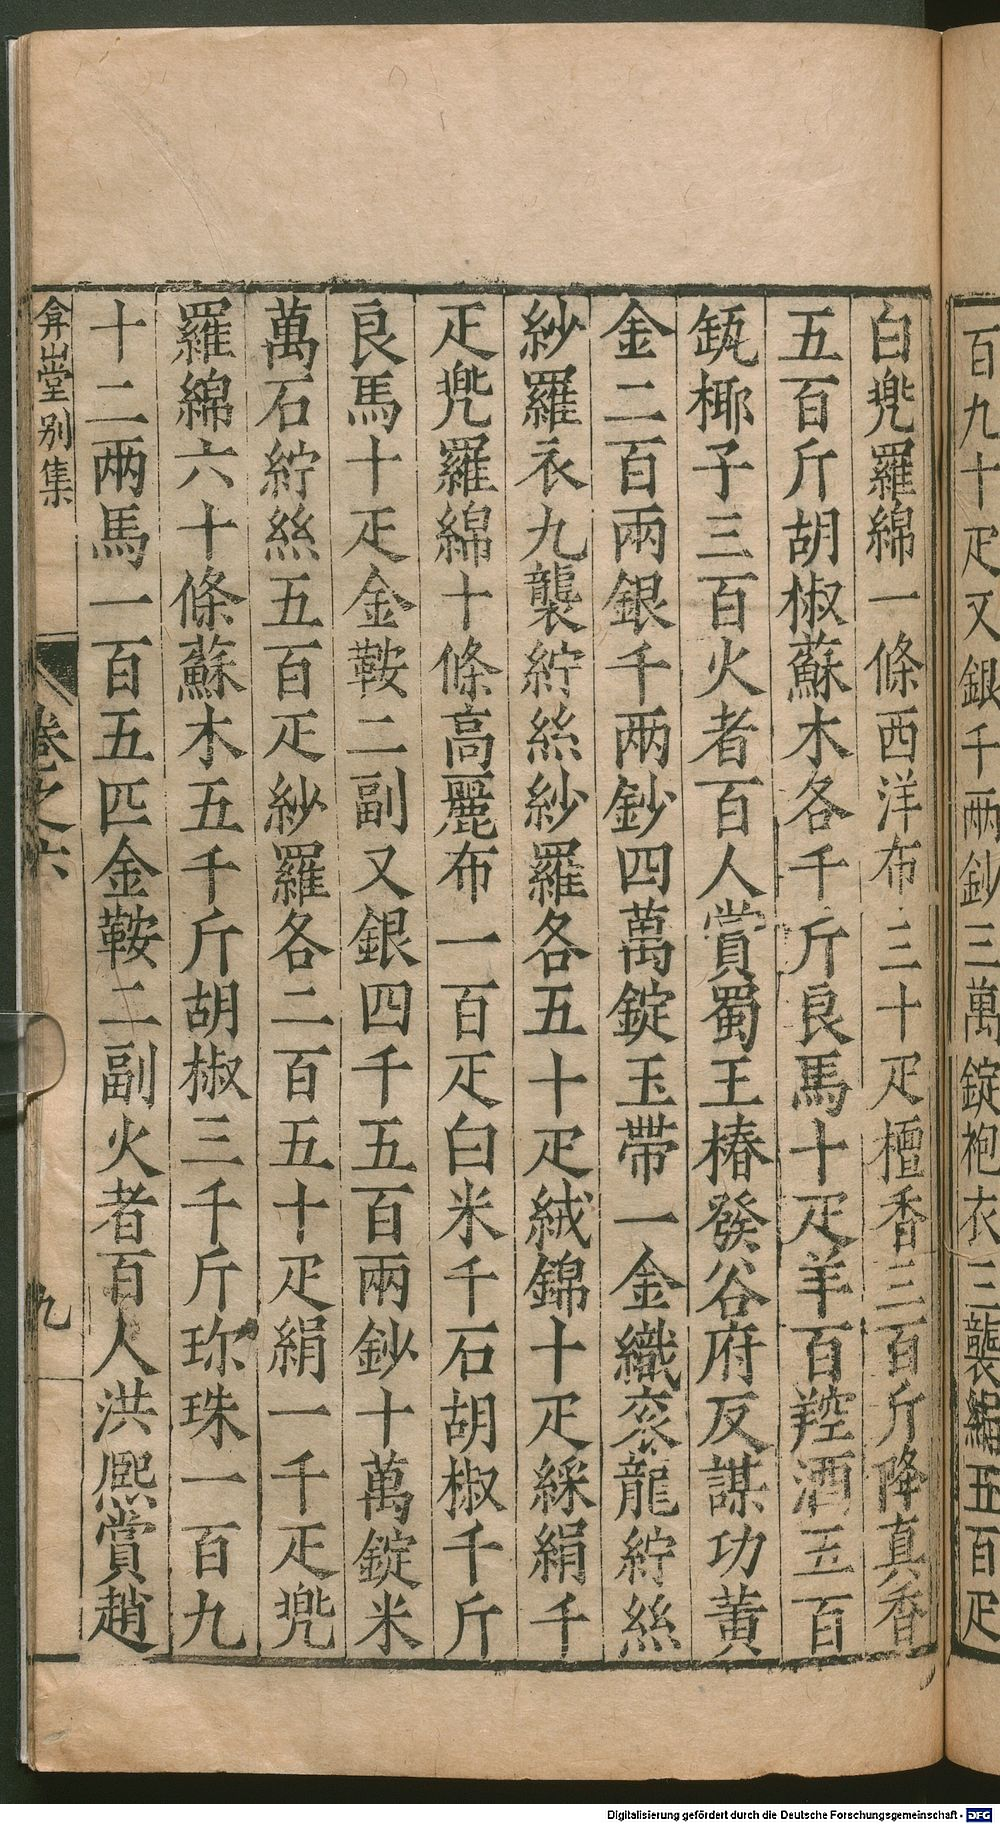 百九十疋又銀千兩鈔三萬錠袍衣三襲絹五百疋
白兠羅綿一條西洋布三十疋檀香三百斤降真香
五百斤胡椒蘇木各千斤良馬十疋羊百羫酒五百
瓻椰子三百火者百人賞蜀王椿發谷府反謀功黄
金二百兩銀千兩鈔四萬錠玉帶一金織衮龍紵絲
紗羅衣九襲紵絲紗羅各五十疋絨錦十疋綵絹千
疋兠羅綿十條高麗布一百疋白米千石胡椒千斤
良馬十疋金鞍二副又銀四千五百兩鈔十萬錠米
萬石紵絲五百疋紗羅各二百五十疋絹一千疋兠
羅綿六十條蘇木五千斤胡椒三千斤珎珠一百九
十二兩馬一百五匹金鞍二副火者百人洪熈賞趙
弇山堂别集
卷之六
九
Digitalisierung gefördert durch die Deutsche Forschungsgemeinschaft - DFG